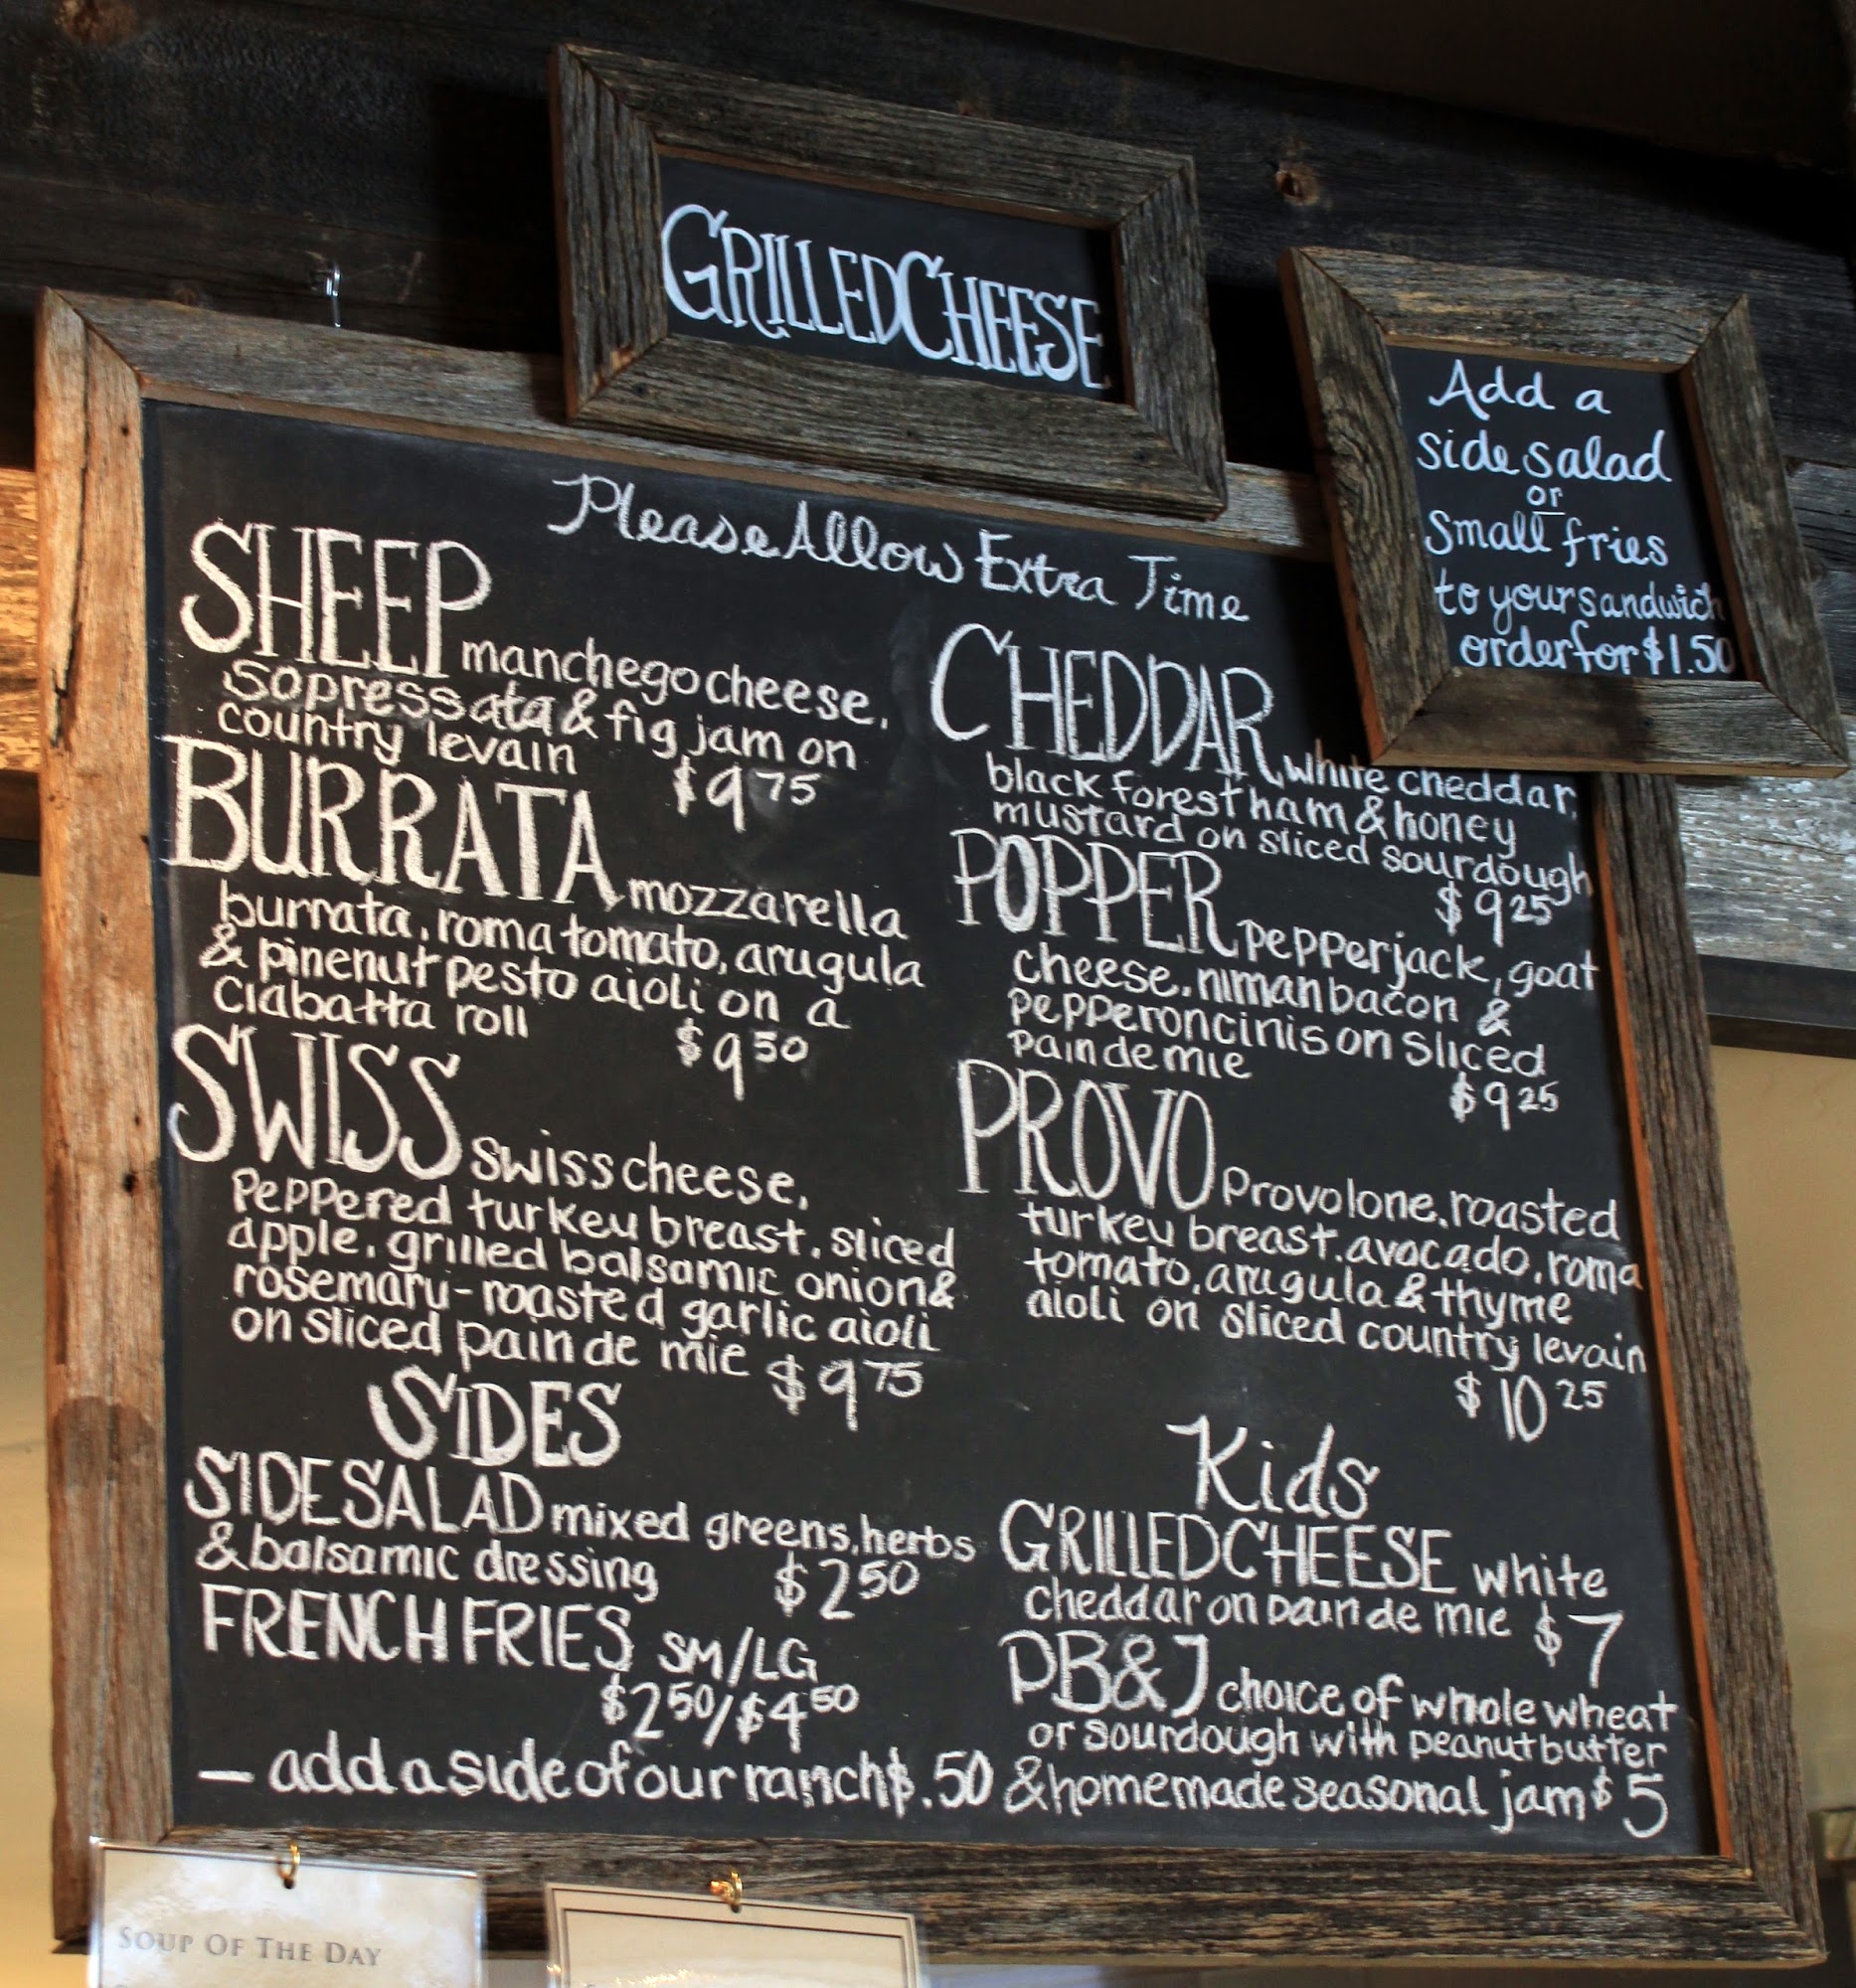 GRILLED CHEESE
Add a
side salad
or
Small fries
to your sandwich
order for $1.50
Please Allow Extra Time
SHEEP manchego cheese,
sopressata & fig jam on
country levain $9 75
BURRATA mozzarella
burrata, roma tomato, arugula
& pinenut pesto aioli on a
ciabatta roll $9 50
SWISS swiss cheese,
peppered turkey breast, sliced
apple, grilled balsamic onion &
rosemary-roasted garlic aioli
on sliced pain de mie $9 75
SIDES
SIDE SALAD mixed greens, herbs
& balsamic dressing $2 50
FRENCH FRIES SM/LG
$2 50/$4 50
— add a side of our ranch $.50
CHEDDAR white cheddar,
black forest ham & honey
mustard on sliced sourdough
$9 25
POPPER pepperjack, goat
cheese, niman bacon &
pepperoncinis on sliced
pain de mie
$9 25
PROVO provolone, roasted
turkey breast, avocado, roma
tomato, arugula & thyme
aioli on sliced country levain
$10 25
Kids
GRILLED CHEESE white
cheddar on pain de mie $7
PB&J choice of whole wheat
or sourdough with peanut butter
& homemade seasonal jam $5
SOUP OF THE DAY